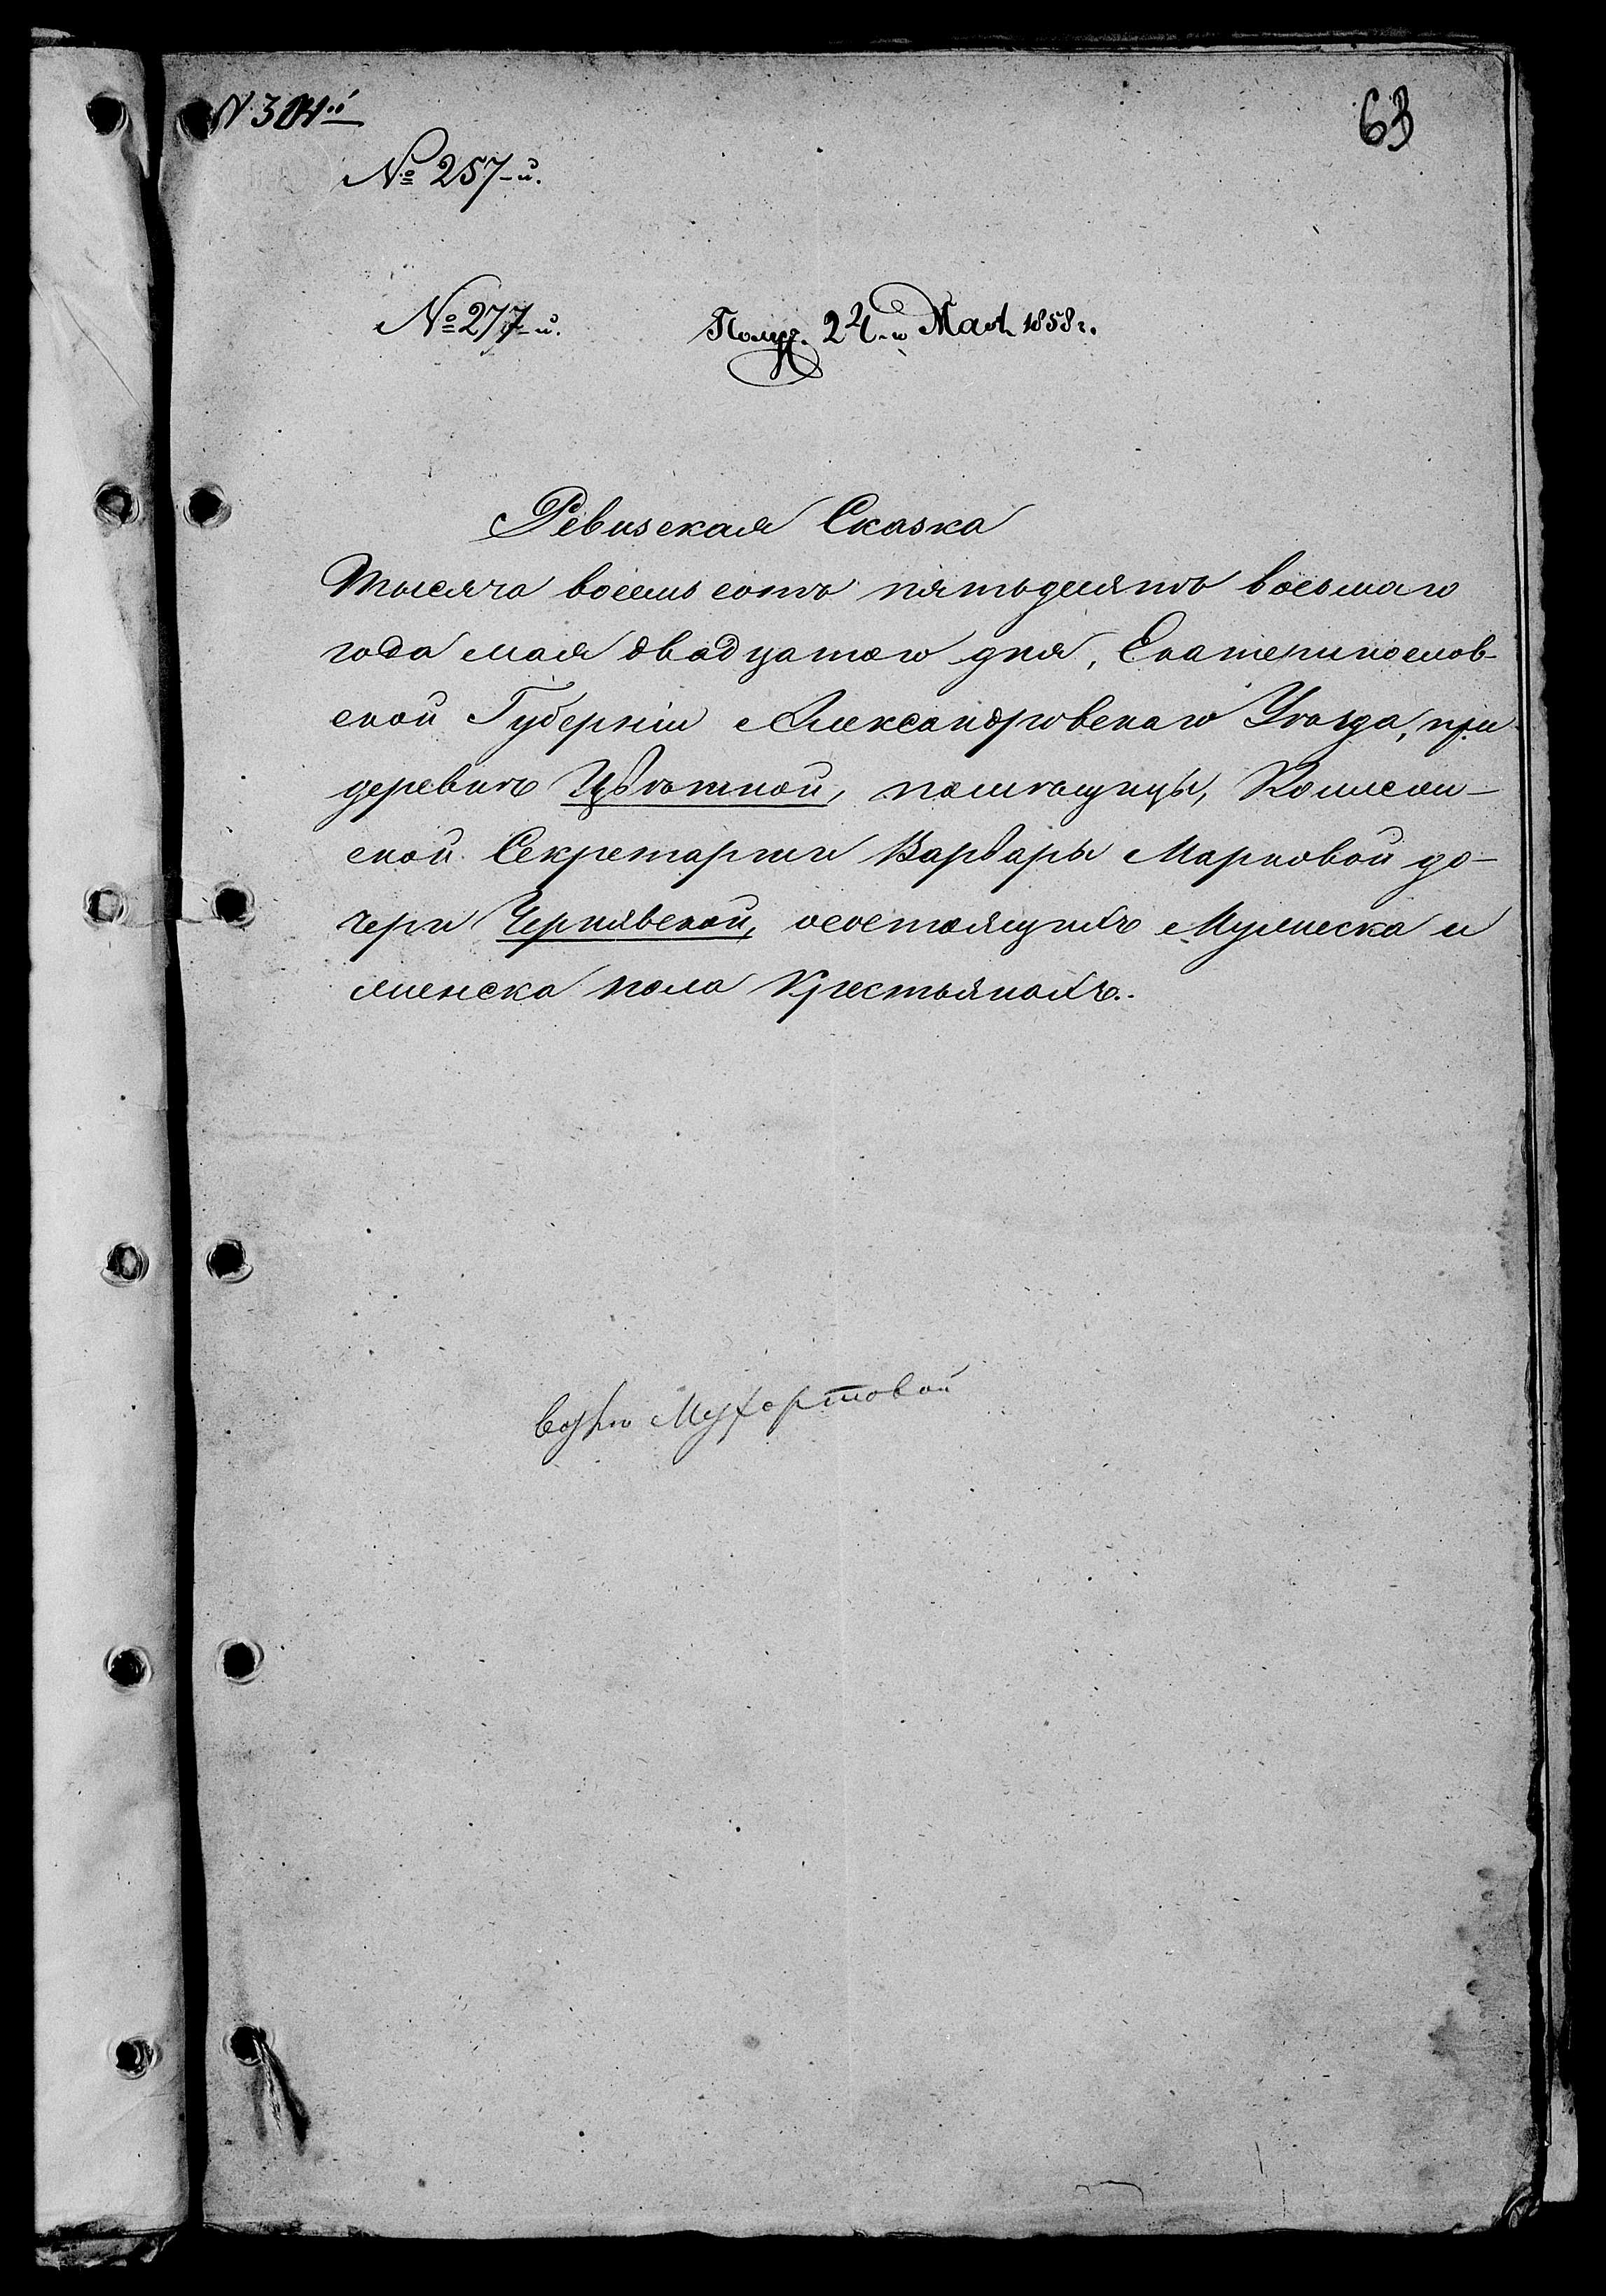 N 304й
63
№ 257-й.
№ 277-й.
Получ. 24-го Мая 1858 г.
Ревизская Сказка
Тысяча восемь сотъ пятьдесятъ восьмаго
года мая двадцатого дня, Екатеринослав-
ской Губерніи Александровскаго Уѣзда, при
деревнѣ Цвѣтной, помѣщицы, Коллеж-
ской Секретарши Варвары Марковой до-
чери Чернявской, о состоящихъ мужеска и
женска пола крестьянахъ.
Мухортовой